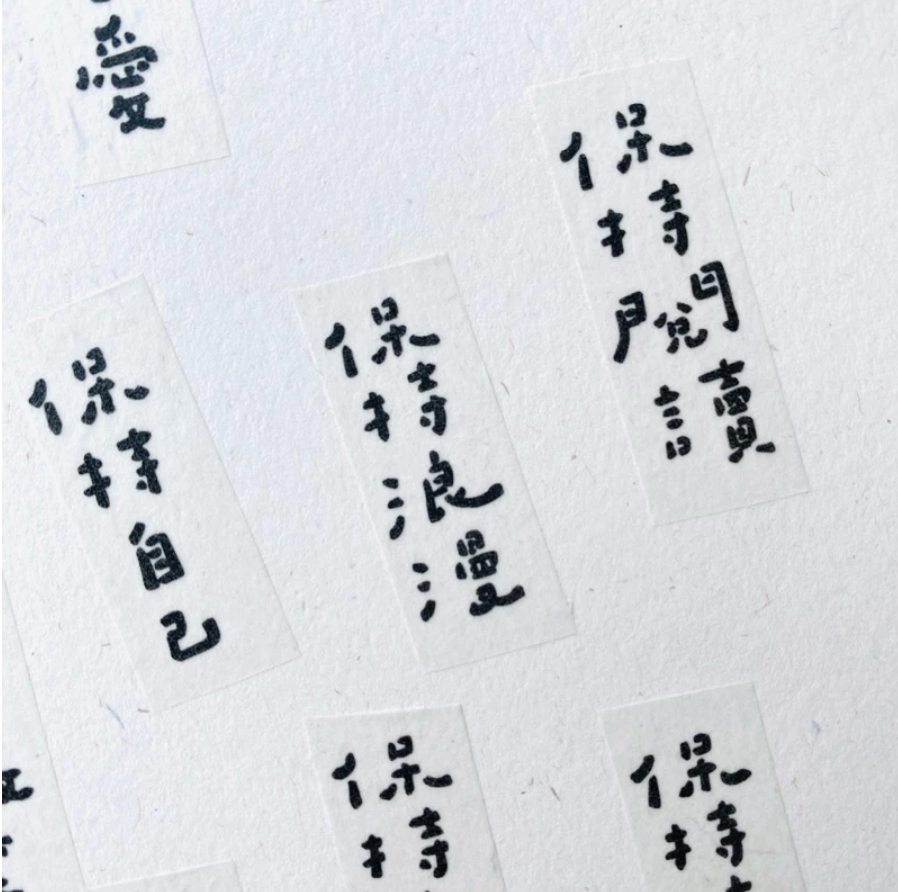 愛
保持閱讀
保持浪漫
保持自己
保持
保持